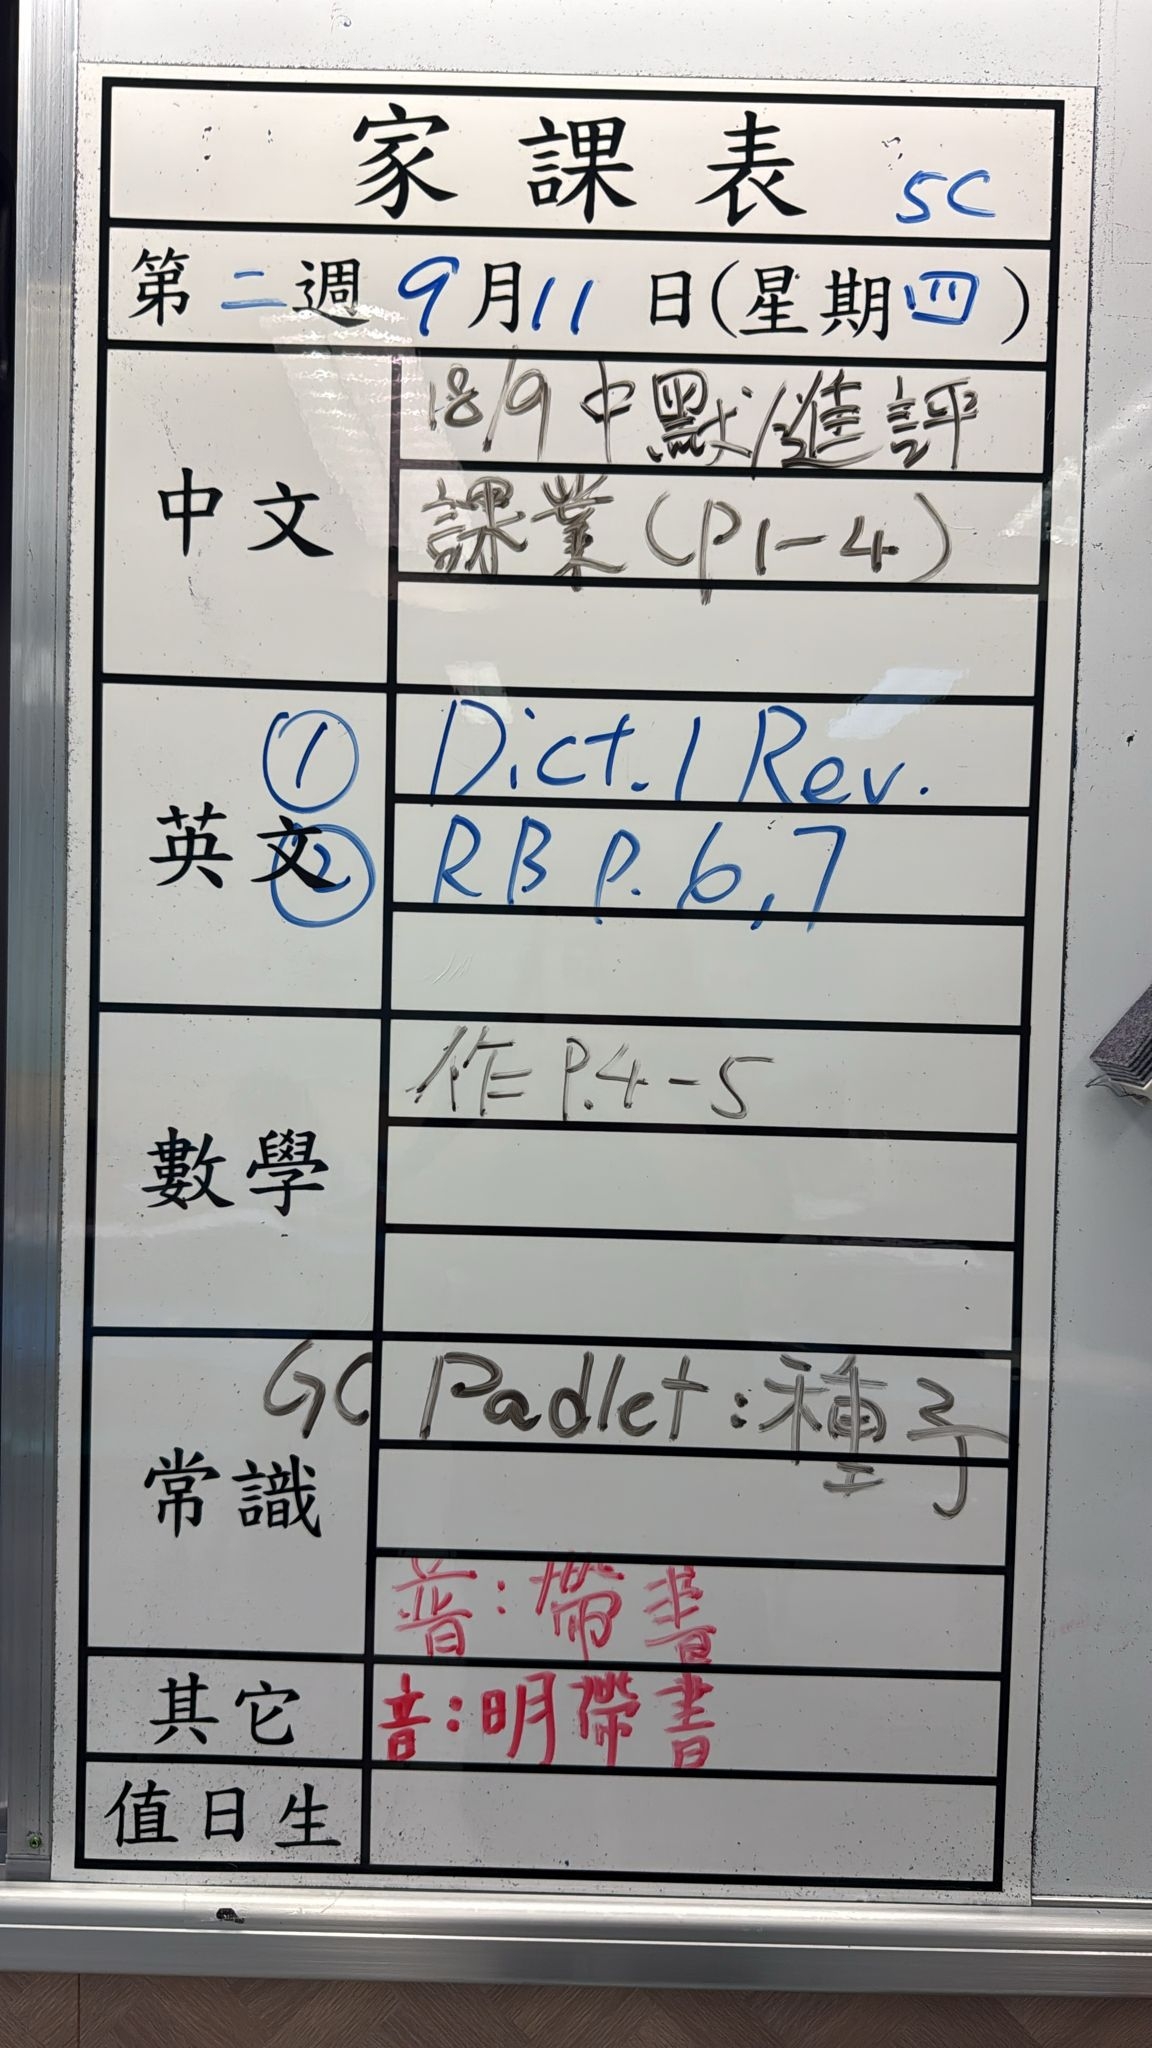 家課表 5C
第二週 9月11日(星期四)
中文
18/9 中默/進評
課業(P1-4)
英文
① Dict. 1 Rev.
② RB P. 6, 7
數學
作 P.4-5
常識
GC Padlet:種子
普:帶書
其它
音:明帶書
值日生